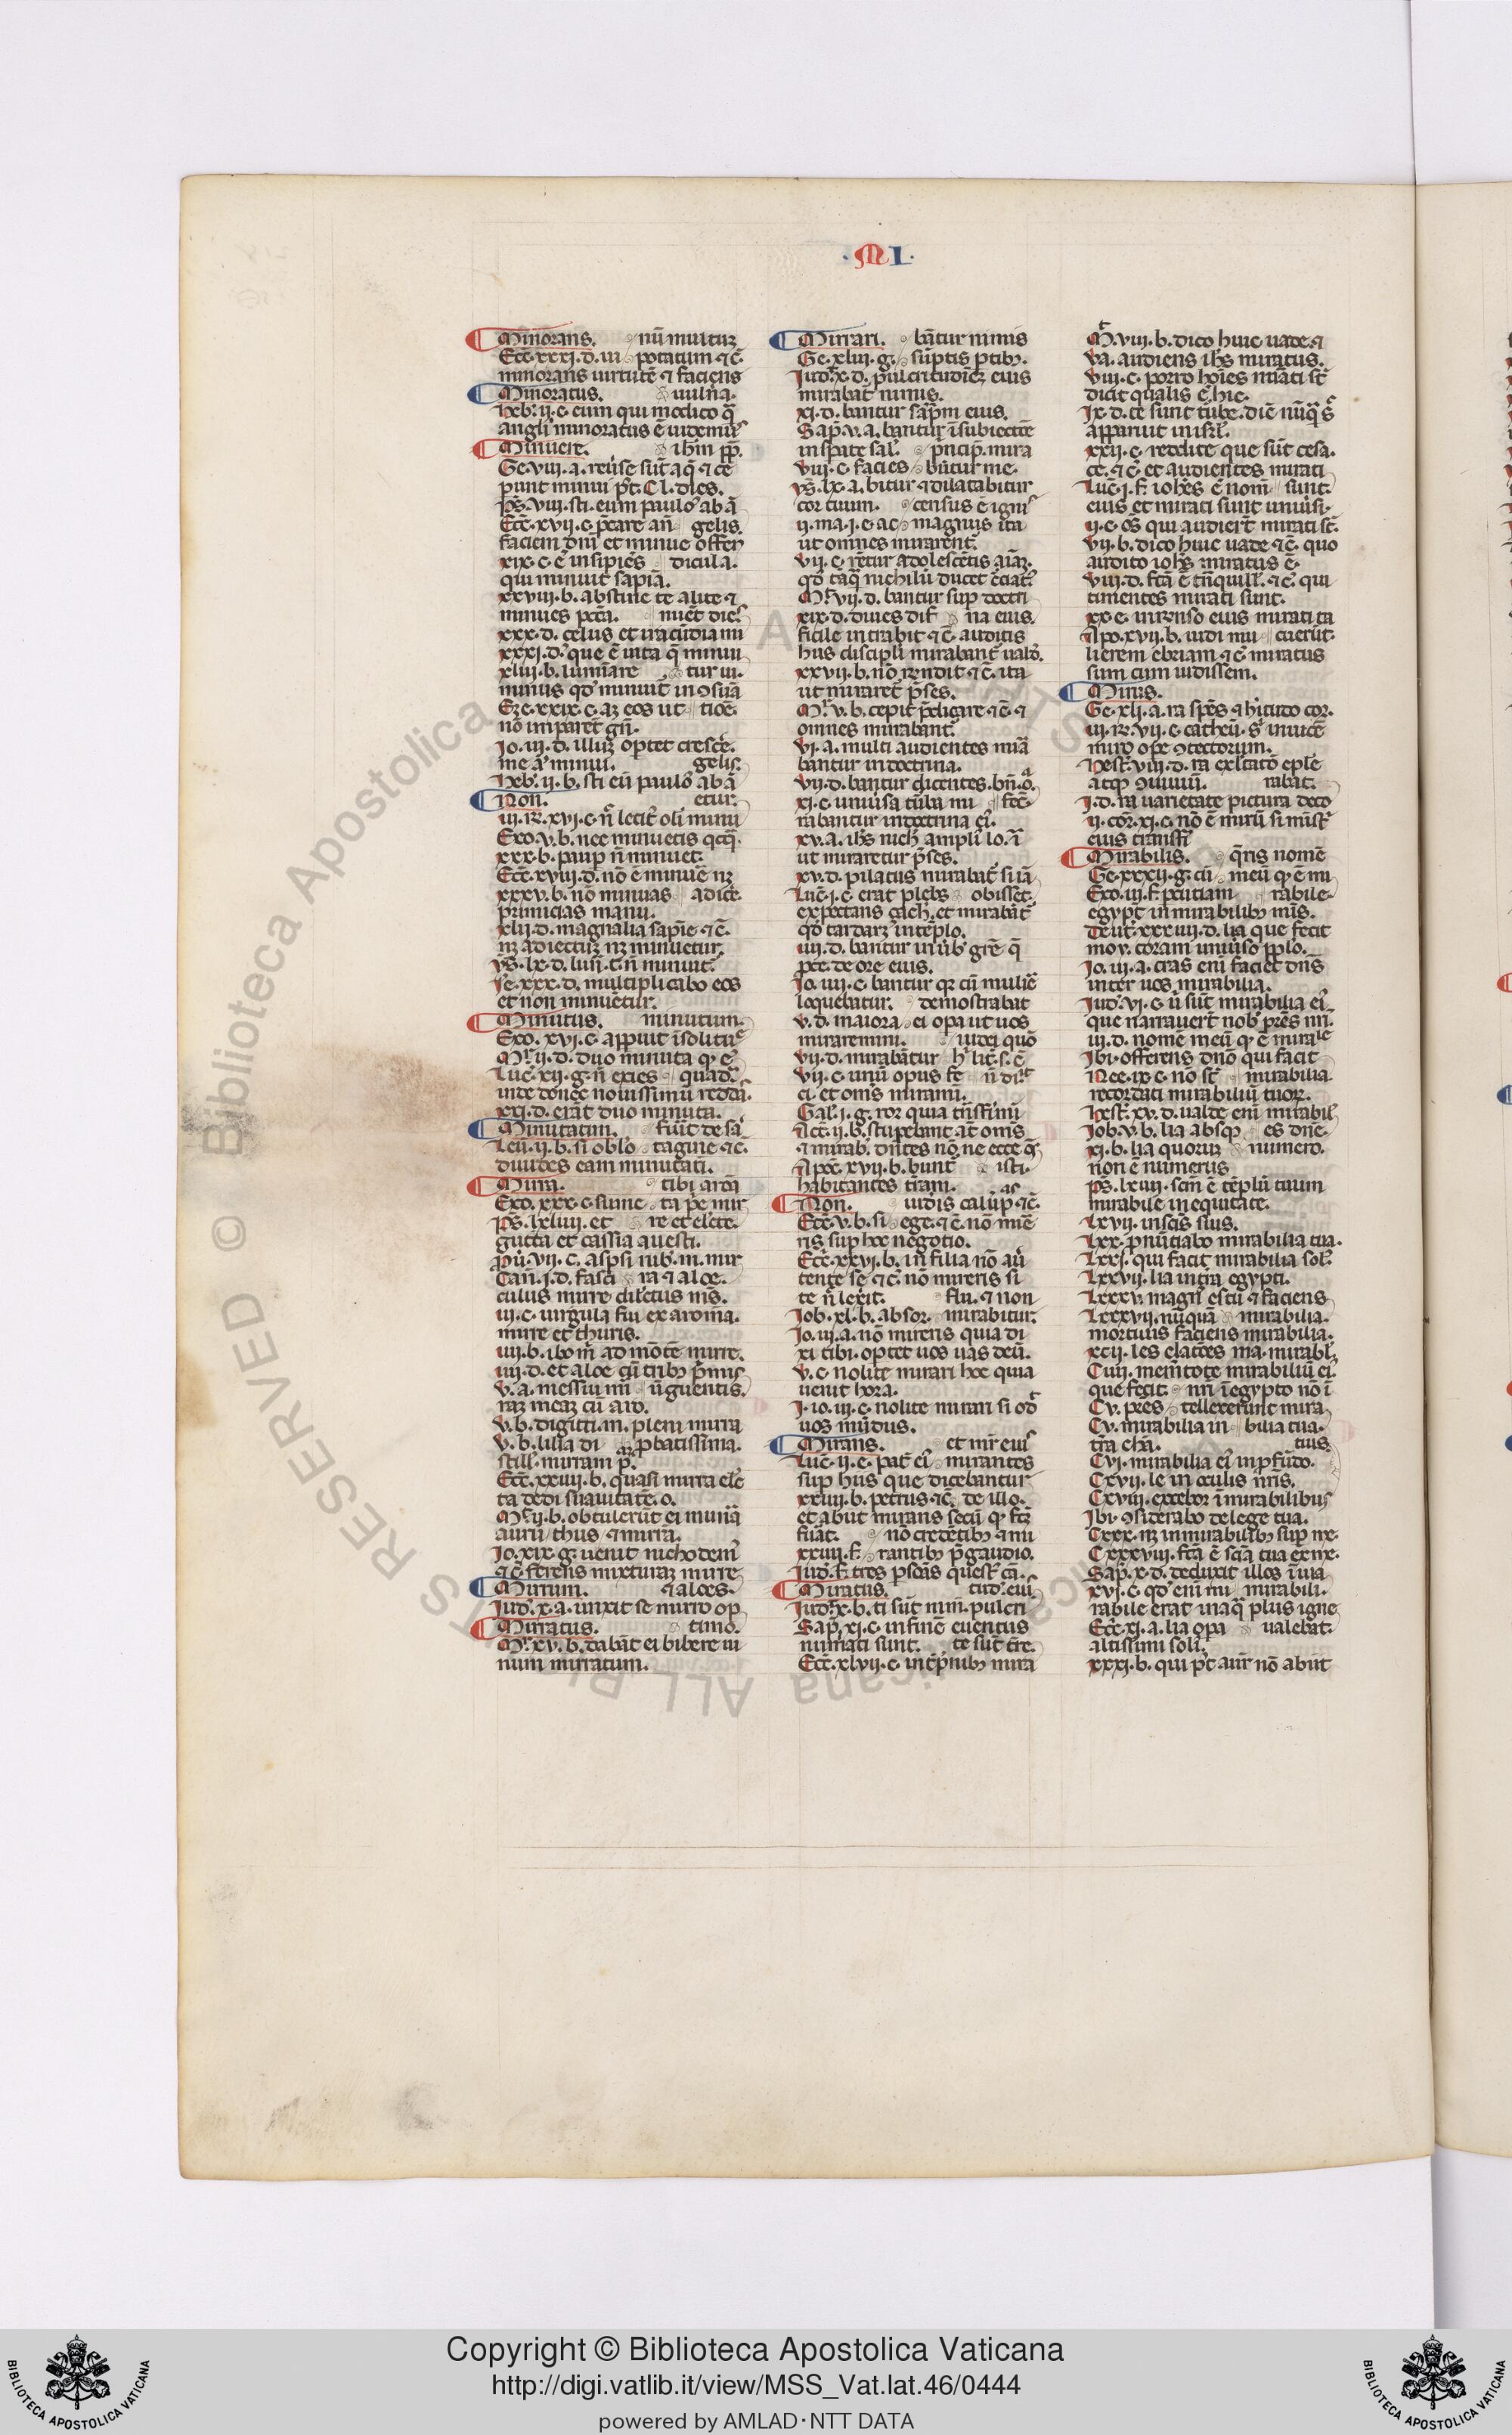 .MI.
Minorans. nū multuƺ
Ecc̄.xxxi.d.ui potatum ⁊ c̄.
minorans uirtutē ⁊ faciens
Minoratus. uulña.
Heb̄.ij.c. eum qui modico q̄
angli minoratus ē uidemus
Minuere. ihm̄ pp̄.
Ge.viii.a. reūse sūt aq̄ ⁊ ce
punt minui pꝰt. Cl. dies.
Ps̄.viii. sti. eum paulo ab ā
Ecc̄.xvii.c. p̄care añ gelis.
faciem dn̄i et minue offen
xix.c. ē insipiēs dicula.
qui minuit sapiā.
xxviii.b. abstine te a lite ⁊
minues pctā. nuēt dies
xxx.d. celus et iracūdia mi
xxxi.d. que ē uita q̄ minui
xliii.b. luminare tur ui.
minus qd̓ minuit in ꝯsūā
Eze.xxix.c. aƺ eos ut tioē.
nō imparēt gn̄.
Io.iii.d. illuƺ optet cresce̓.
me aꝰ minui. gelis.
Heb̄.ii.b. sti eū paulo ab ā
Non. etur.
iii.Rꝝ.xvij.c. n̄ lecit̓ oli minu
Exo.v.b. nec minuetis qcq̄.
xxx.b. paup̄ n̄ minuet.
Ecc̄.xviii.d. nō ē minuē nƺ
xxxv.b. nō minuas adice̓.
primicias manu.
xlii.d. magnalia sapīe ⁊ c̄.
nƺ adiectuƺ nƺ minuetur.
Ys̄.lx.d. lun̄.t. n̄ minuit̓.
Ie.xxx.d. multiplicabo eos
et non minuētur.
Minutus. minutum.
Exo.xvj.c. appuit ī solitu
Mr̓.ii.d. duo minuta qꝫ ē
Luc̄.xii.g. n̄ exies quad̓.
inde donec nouissimū reddā.
xxi.d. erāt duo minuta.
Minutatim. fūit de sa
Leui.ii.b. si oblo tagine ⁊ c̄.
diuides eam minutati.
Mirra. tibi aroā
Exo.xxx.c. sume ta p̄e mir
Ps̄.xliiii. et re et elcte.
gutta et cassia a uesti.
Pu̓.vii.c. aspsi cub̄. m. mir
Can̄.i.d. fasci ra ⁊ aloe.
culus mirre dilctus m̄s.
iii.c. uirgula fui ex aroma.
mirre et thuris.
iiii.b. ibo m̄ ad mōtē mirre.
iiii.d. et aloe cū trib; p̄mis
v.a. messui mi n̄guentis.
raƺ meaƺ cū aro.
v.b. digiti.m. pleni mirra
v.b. lilia di pbatissima.
still̓. mirram p̓.
Ecc̄.xxiiii.b. quasi mirra ele
ta dedi suauitatē. o.
Mr̓.ii.b. obtulerūt ei munā
aurū thus ⁊ mirrā.
Io.xix.g. uenit nichodem̄
⁊ c̄ ferens mixturaƺ mirre
Mirrum. ⁊ aloes.
Iud̓.x.a. unxit se mirro op
Mirratus. timo.
Mr̓.xv.b. dabāt ei bibere ui
num mirratum.
Mirari. bātur nimis
Ge.xliii.g. sūptis ptib;.
Iud̓.x.d. pulcritudinē eius
mirabāt̓ nimis.
xi.d. bantur sap̄m eius.
Sap̄.v.a. bantur ī subiecte
inspate sal̓. pncip̄. mira
viii.c. facies būtur me.
Ys̄.lx.a. bitur ⁊ dilatabitur
cor tuum. census ē ignis
ii.ma.i.c. ac magnus ita
ut omnes mirarent̓.
vii.c. retur adolescētis aīaƺ.
qd̓ taq̄ nichilū ducet c̄ciat̓.
Mr̓.vii.d. bantur sup doctri
xix.d. diues dif na eius.
ficile intrabit ⁊ c̄. auditis
hiis discipli mirabant̓ ualō.
xxvii.b. nō rn̄dit ⁊ c̄. ita
ut miraret̓ p̄ses.
Mr̓.v.b. cepit p̄dicare ⁊ c̄ ⁊
omnes mirabant̓.
vi.a. multi audientes mirā
bantur in doctrina.
vii.d. bantur dicentes. bn̄.o.
xi.c. uniūsa tūba mi fec̄.
rabantur in doctrina ei̓.
xv.a. ihs̄ nich̓ ampli̓ lo. ī
ut miraretur p̄ses.
xv.d. pilatus mirabat̓ si iā
Luc̄.i.c. erat plebs obisset̓.
expectans zach̓. et mirabāt̓
qd̓ tardarƺ in tēplo.
iiii.d. bantur in ūb̓ gr̄e q̄
pce. de ore eius.
Io.iiii.c. bantur qꝫ cū mulie̓
loquebatur. demostrabat
v.d. maiora ei opa ut uos
miraremini. iudei quō
vii.d. mirabātur h̓ lit̓. s̄. c̄
vii.c. unū opus fe n̄ di.
ci et oms miramī.
Gal̓.i.g. ror quia trāsfimi
Act̓.ii.b. stupebant at̓ omīs
⁊ mirab̓. dn̄tes nō. ne ecce qͥ
Apoc̄.xvii.b. bunt̓ isti.
habitantes tram.
Non. uidis calup̓ ⁊ c̄.
Ecc̄.v.b. si ege. ⁊ c̄. nō mirē
ris sup hoc negotio.
Ecc̄.xxvi.b. in filia nō au̓
tente se ⁊ c̄. nō mireris si
te n̄ lexit. flu. ⁊ non
Iob.xl.b. absor. mirabitur.
Io.iii.a. nō mireris quia di
xi tibi. optet uos nas deū.
v.c. nolite mirari hoc quia
uenit hora.
I.io.iii.c. nolite mirari si od̓
uos mūdus.
Mirans. et mr̄ eius
Luc̄.ii.e. pat̓ ei̓ mirantes
sup hiis que dicebantur
xxiiii.b. petrus ⁊ c̄. de illo.
et abiit mirans secū qꝫ fcƺ
fūat. nō credētib; ⁊ mi
xxiiii.f. rantib; p̄ gaudio.
Iud̓.f. tres psoās quest̓ cā.
Miratus. tud̓. eius
Iud̓.x.b. ti sūt nim̄. pulcri
Sap̄.xi.c. in finē euentus
mirati sunt. te sūt tre.
Ecc̄.xlvii.c. in t̄p̄tatib; mira
Mt̓.viii.b. dico huic uade. ⁊
va. audiens ihs̄ miratus.
viii.c. porro hoies mirati st̄
dicēt qualis ē hic.
Ix.d. te sunt turbe. diē nūq̄ s̄
apparuit in isrl̓.
xxii.c. reddite que sūt cesa.
ce. ⁊ c̄. et audientes mirati
Luc̄.i.f. iohs̄ ē nom̄ sunt.
eius et mirati sunt uniūsi.
ii.c. os̄ qui audierūt mirati st̄.
vii.b. dico huic uade ⁊ c̄. quo
audito iohs̄ miratus ē.
viii.d. fctā ē tn̄quill̓. ⁊ c̄. qui
timentes mirati sunt.
xx.e. in rn̄so eius mirati ta
Apo.xvii.b. uidi mu cuerūt.
lierem ebriam. ⁊ c̄ miratus
sum cum uidissem.
Mirus.
Ge.xli.a. ra spēs ⁊ hitudo cor.
iii.Rꝝ.vii.c. cathen̄. s̄ inuicē
miro ope ꝯtectorum.
Hest̓.viii.d. ra exl̓tatō eple
atqꝫ ꝯuiuiū. rabat̓.
I.d. ra uarietate pictura deco
ii.Cor̄.xi.c. nō ē mirū si mīst̓
eius transfr̄
Mirabilis. q̄ris nomē
Ge.xxxii.g. cū meū qꝫ ē mi
Exo.iii.f. pcutiam rabile.
egypt̓ in mirabilib; m̄s.
Deut̓.xxxiiii.d. lia que fecit
moy. coram uniūso pplo.
Io.iii.a. cras eni faciet dn̄s
inter uos mirabilia.
Iud̓.vj.c. ū sūt mirabilia ei̓
que narrauert̓ nob̓ pres nr̄i.
iii.d. nomē meū qꝫ ē mirale
Ibi. offerens dn̄o qui facit
Nee.ix.c. nō st̄ mirabilia.
recordati mirabiliū tuoꝝ.
Hest̓.xv.d. ualde eni mirabil̓
Iob.v.b. lia absqꝫ es dn̄e.
xi.b. lia quoruƺ numero.
non ē numerus
Ps̄.lxiiii. scm̄ ē tēplū tuum
mirabile in equitate.
Lxvii. in scis suis.
Lxx. pnūtiabo mirabilia tua.
Lxxi. qui facit mirabilia sol̓.
Lxxvii. lia in tra egypti.
Lxxxv. magn̄ es tu ⁊ faciens
Lxxxvii. nūquā mirabilia.
mortuis faciens mirabilia.
xcii. les elatoēs ma. mirabl̓.
Ciiii. memētote mirabiliū ei̓.
que fecit. nr̄i ī egypto nō ī
Cv. pres tellexerunt mira
Cv. mirabilia in bilia tua.
tra cha. tuis.
Cvj. mirabilia ei̓ in pfūdo.
Cxvii. le in oculis nr̄is.
Cxviii. excebor ī mirabilibus
Ibi. ꝯsiderabo de lege tua.
Cxxx. nƺ in mirabilib; sup me.
Cxxxviii. fctā ē sciā tua ex me.
Sap̄.x.d. deduxit illos ī uia
xvj.c. qd̓ eni mi mirabili.
rabile erat in aq̄ plus igne
Ecc̄.xi.a. lia opa ualebat̓.
altissimi soli̓.
xxxi.b. qui pꝰt aur̄ nō abiit
Copyright © Biblioteca Apostolica Vaticana
http://digi.vatlib.it/view/MSS_Vat.lat.46/0444
powered by AMLAD·NTT DATA